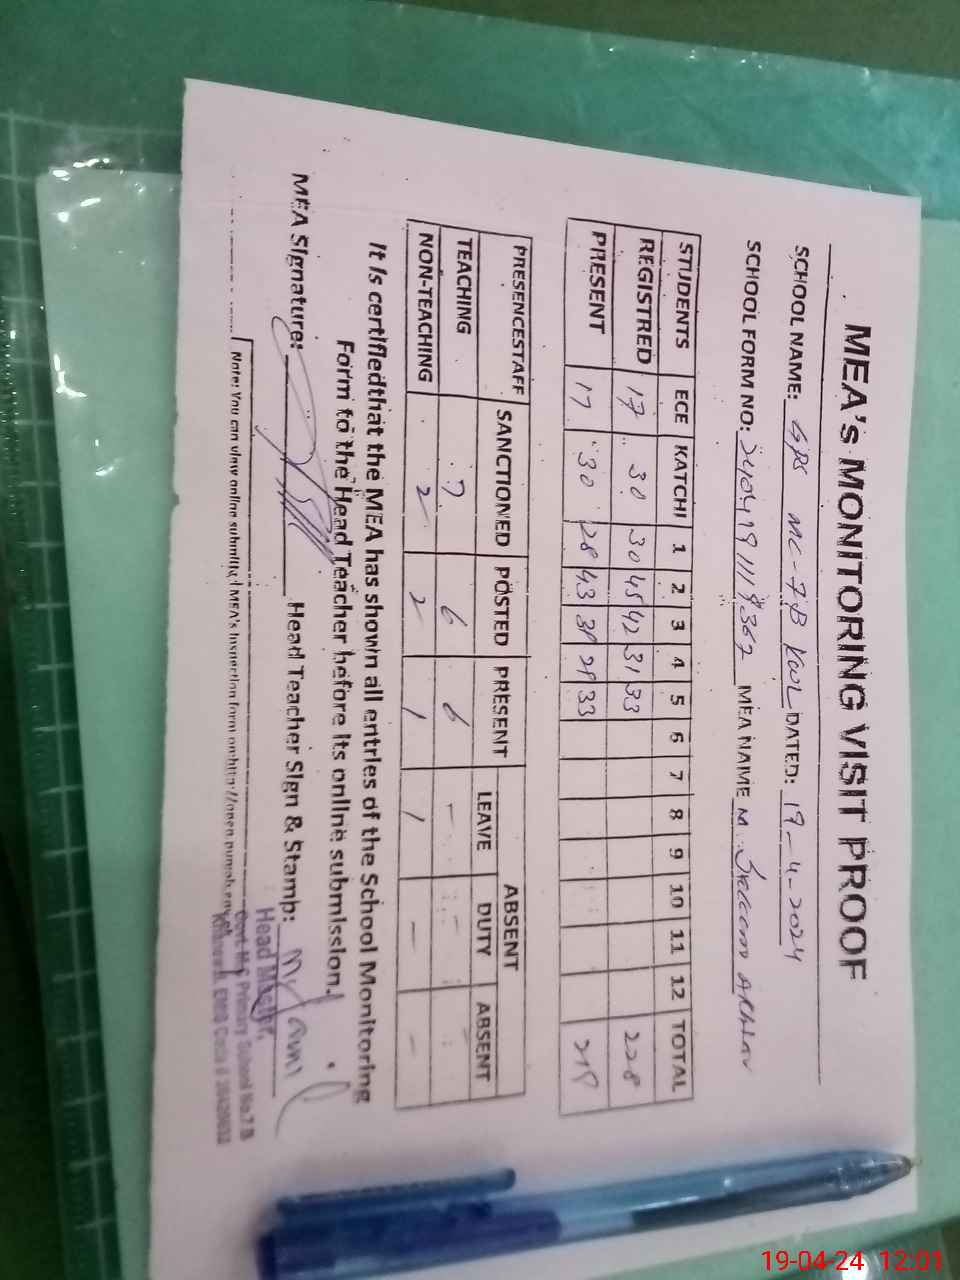 MEA's MONITORING VISIT PROOF
SCHOOL NAME: GPS MC-7B KWL DATED: 19-4-2024
SCHOOL FORM NO: MEA NAME M.
STUDENTS ECE KATCHI 1 2 3 4 5 6 7 8 9 10 11 12 TOTAL
REGISTRED 17 30 30 45 42 31 33 228
PRESENT 17 30 28 43 38 28 33
PRESENCESTAFF SANCTIONED POSTED PRESENT ABSENT
LEAVE DUTY ABSENT
TEACHING 7 6 6 -
NON-TEACHING 2 2 1 1 - -
It is certifiedthat the MEA has shown all entries of the School Monitoring
Form to the Head Teacher before its online submission.
MEA Signature: Head Teacher Sign & Stamp:
Head Master,
Govt. M.C Primary School No.7.B
Khanewal. EMIS Code #
Note: You can view online submitted MEA's Inspection form on
19-04-24 12:01